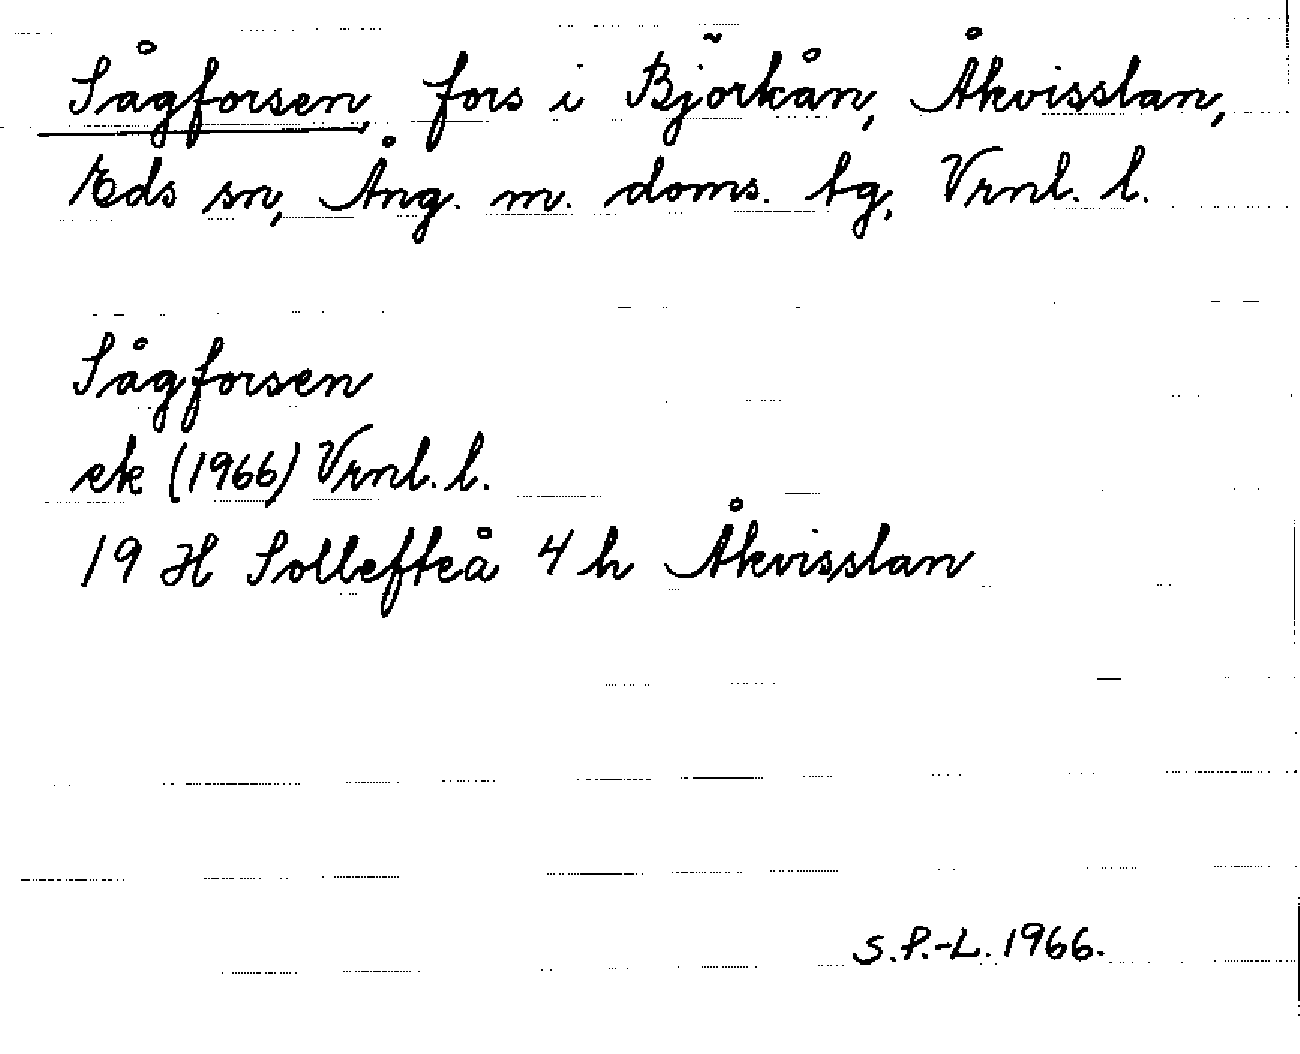 Sågforsen, fors i Björkån, Åkvisslan,
Eds sn, Ång. m. doms. tg, Vrnl. l.
Sågforsen
ek (1966) Vrnl. l.
19 H Sollefteå 4 h Åkvisslan
S.P.-L. 1966.